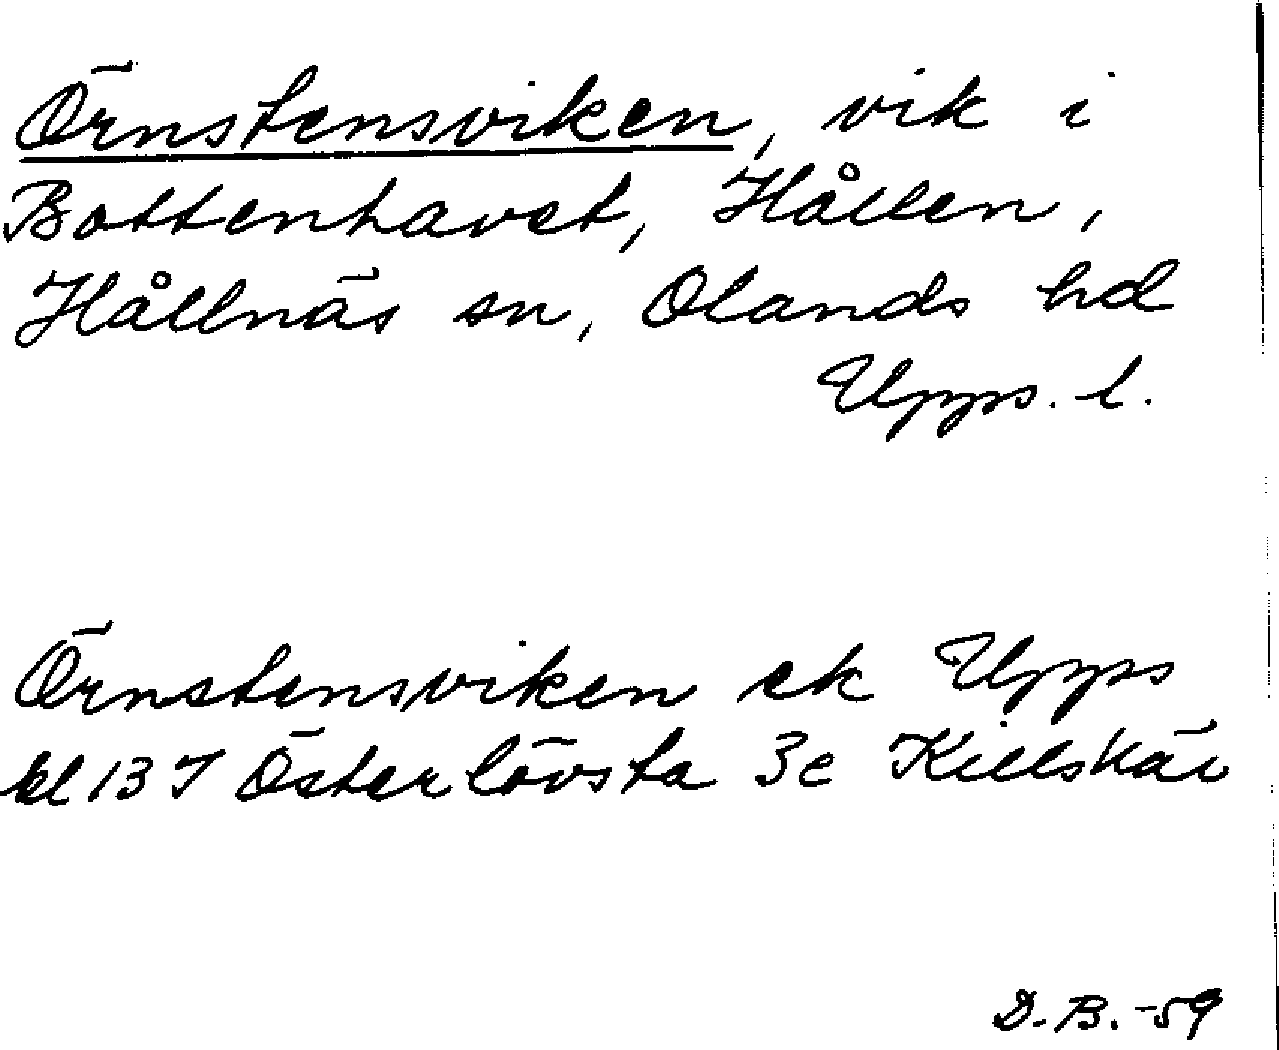 Örnstensviken, vik i
Bottenhavet, Hållen,
Hållnäs sn, Olands hd
Upps. l.
Örnstensviken ek Upps
bl 137 Österlövsta 3e Killskär
D.B.-59